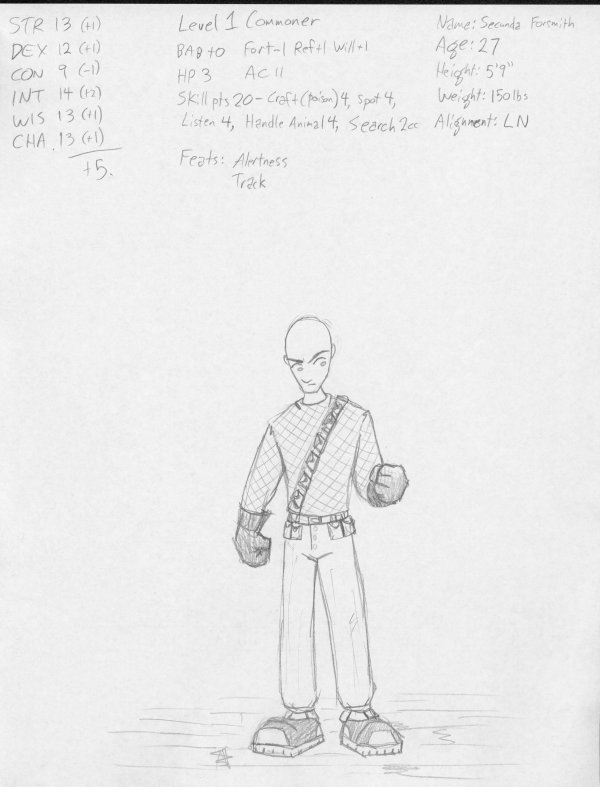 STR 13 (+1)
DEX 12 (+1)
CON 9 (-1)
INT 14 (+2)
WIS 13 (+1)
CHA 13 (+1)
+5.
Level 1 Commoner
BAB +0 Fort-1 Ref+1 Will+1
HP 3 AC 11
Skill pts 20 - Craft (poison) 4, Spot 4,
Listen 4, Handle Animal 4, Search 2cc
Feats: Alertness
Track
Name: Secunda Forsmith
Age: 27
Height: 5'9"
Weight: 150 lbs
Alignment: LN